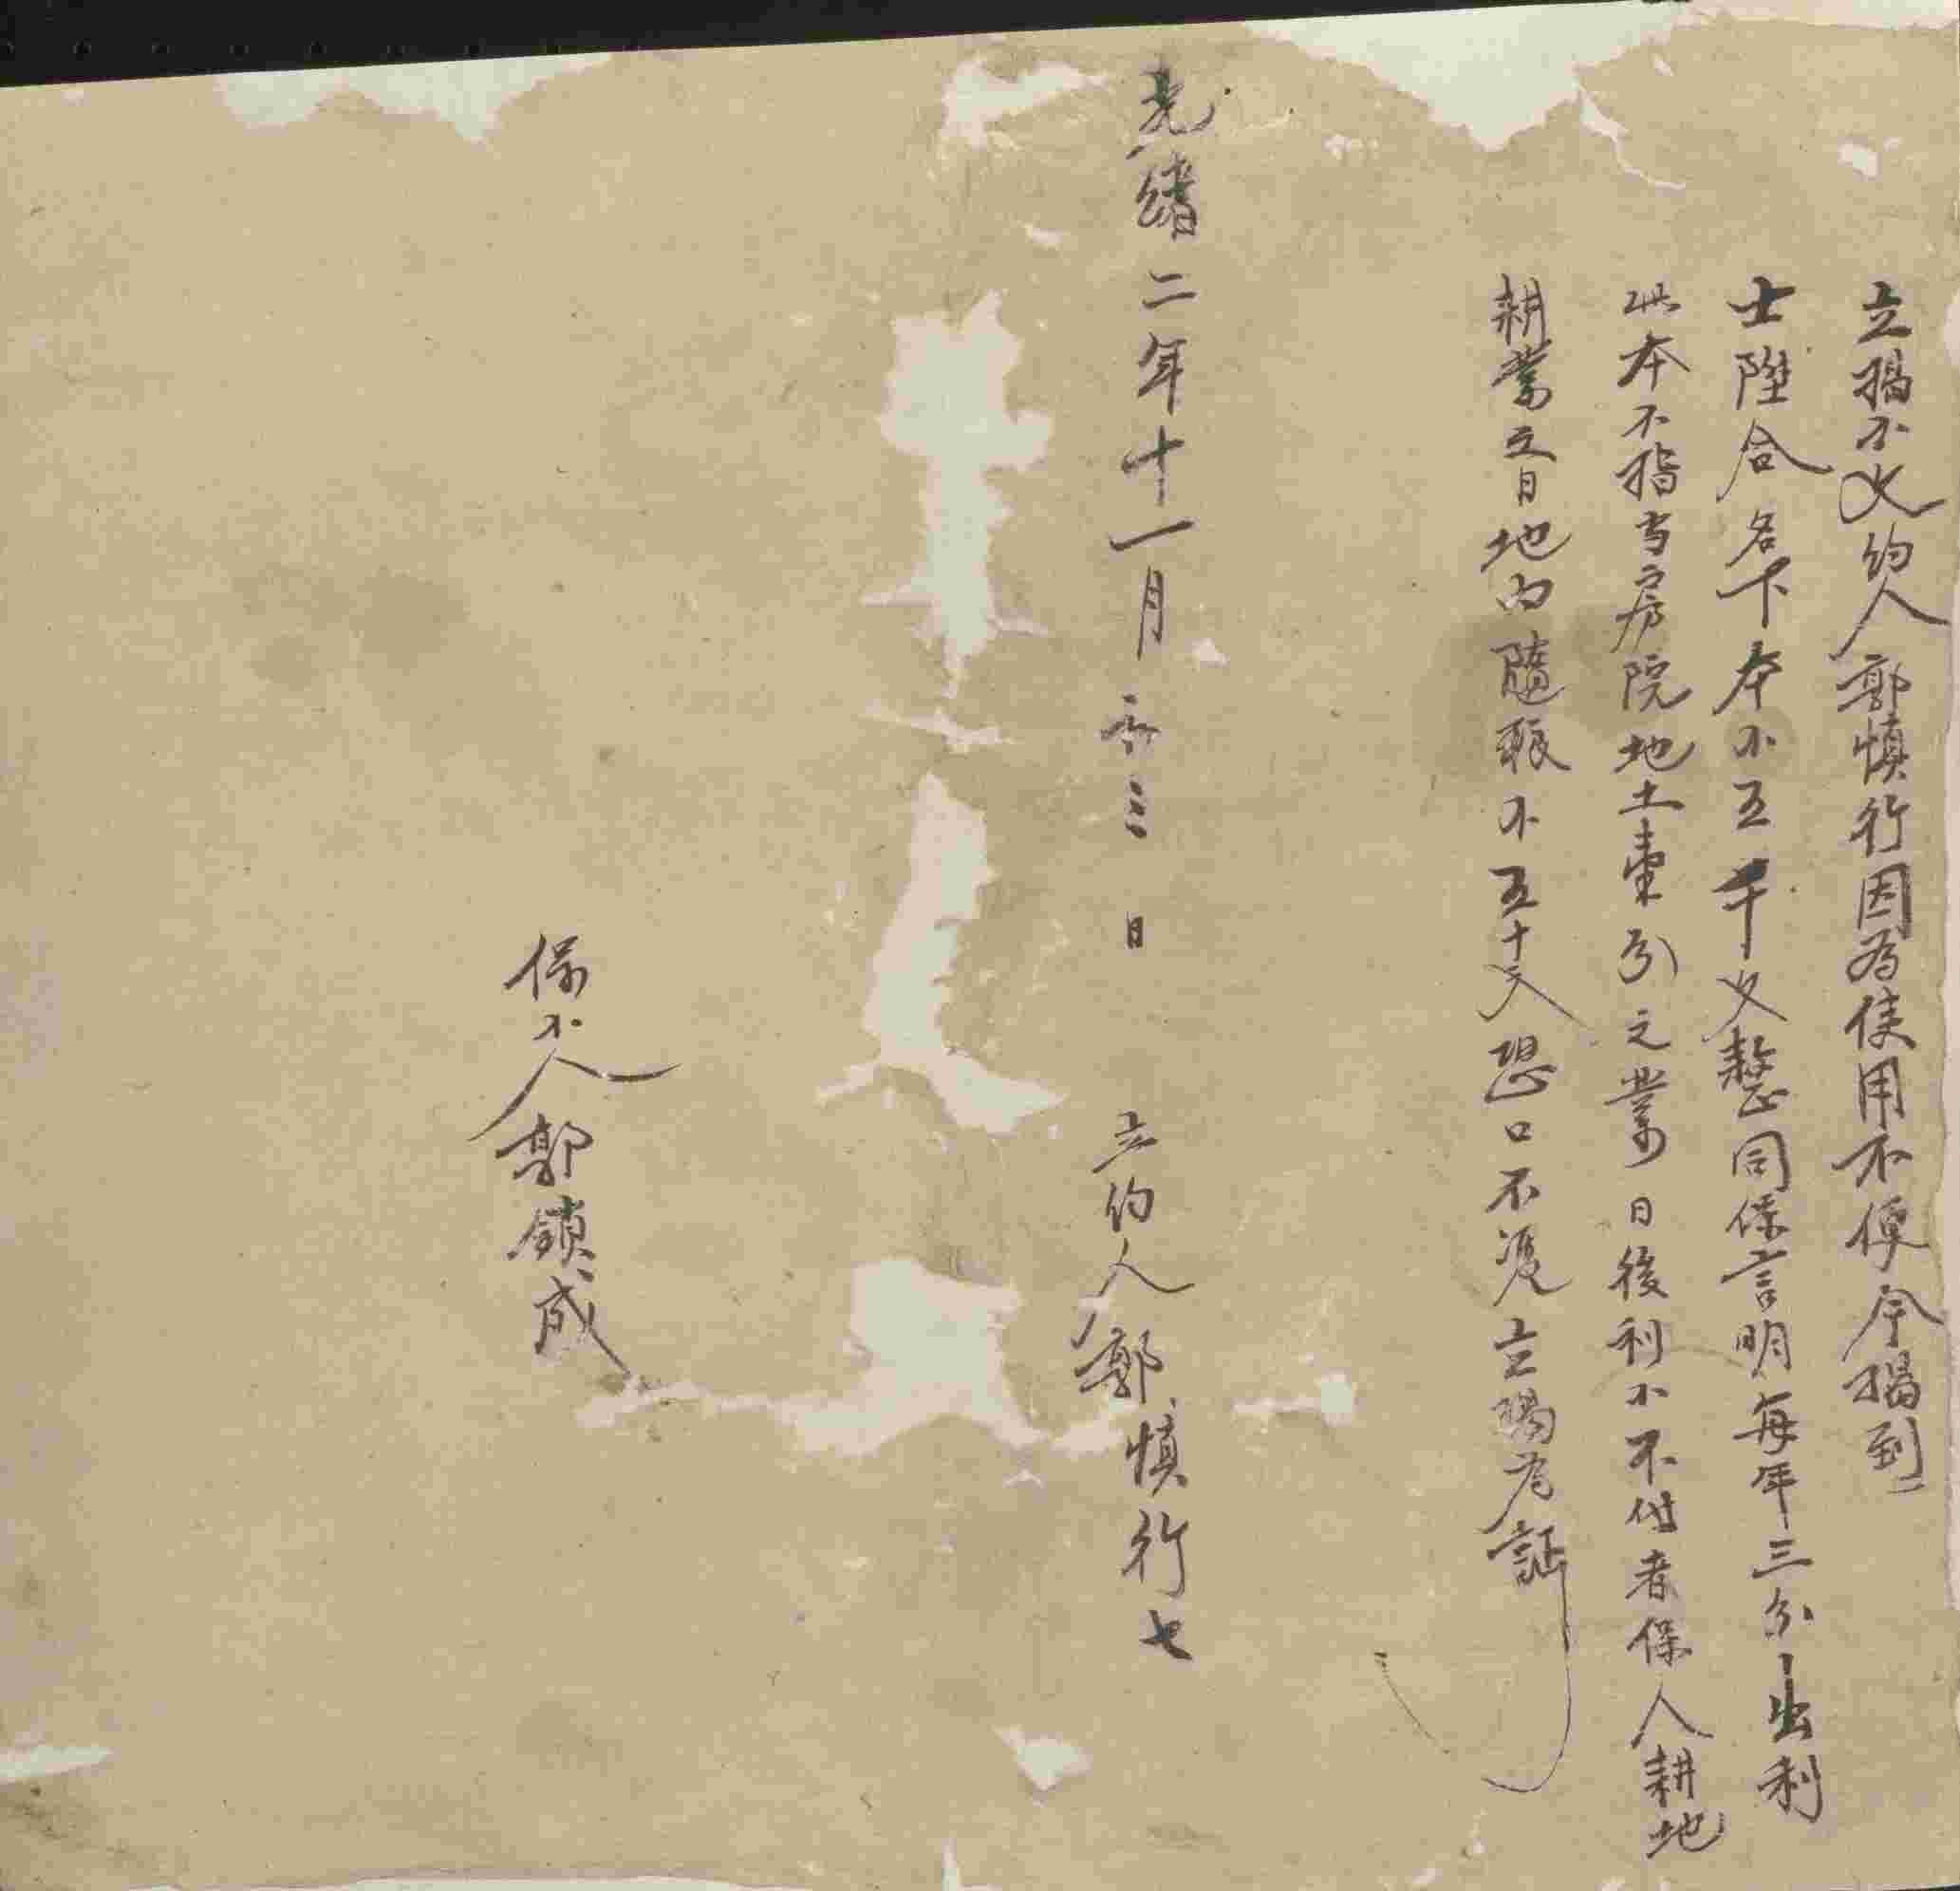 立揭小文約人郭慎行因為使用不便今揭到
士陞合名下本小五千文整同保言明每年三分出利
此本不指与房院地土壹分之業日後利小不付者保人耕地
耕業立日地內隨粮小五十文恐口不凭立揭為証
光緒二年十一月初三日 立約人郭慎行七
保小人郭鎖成